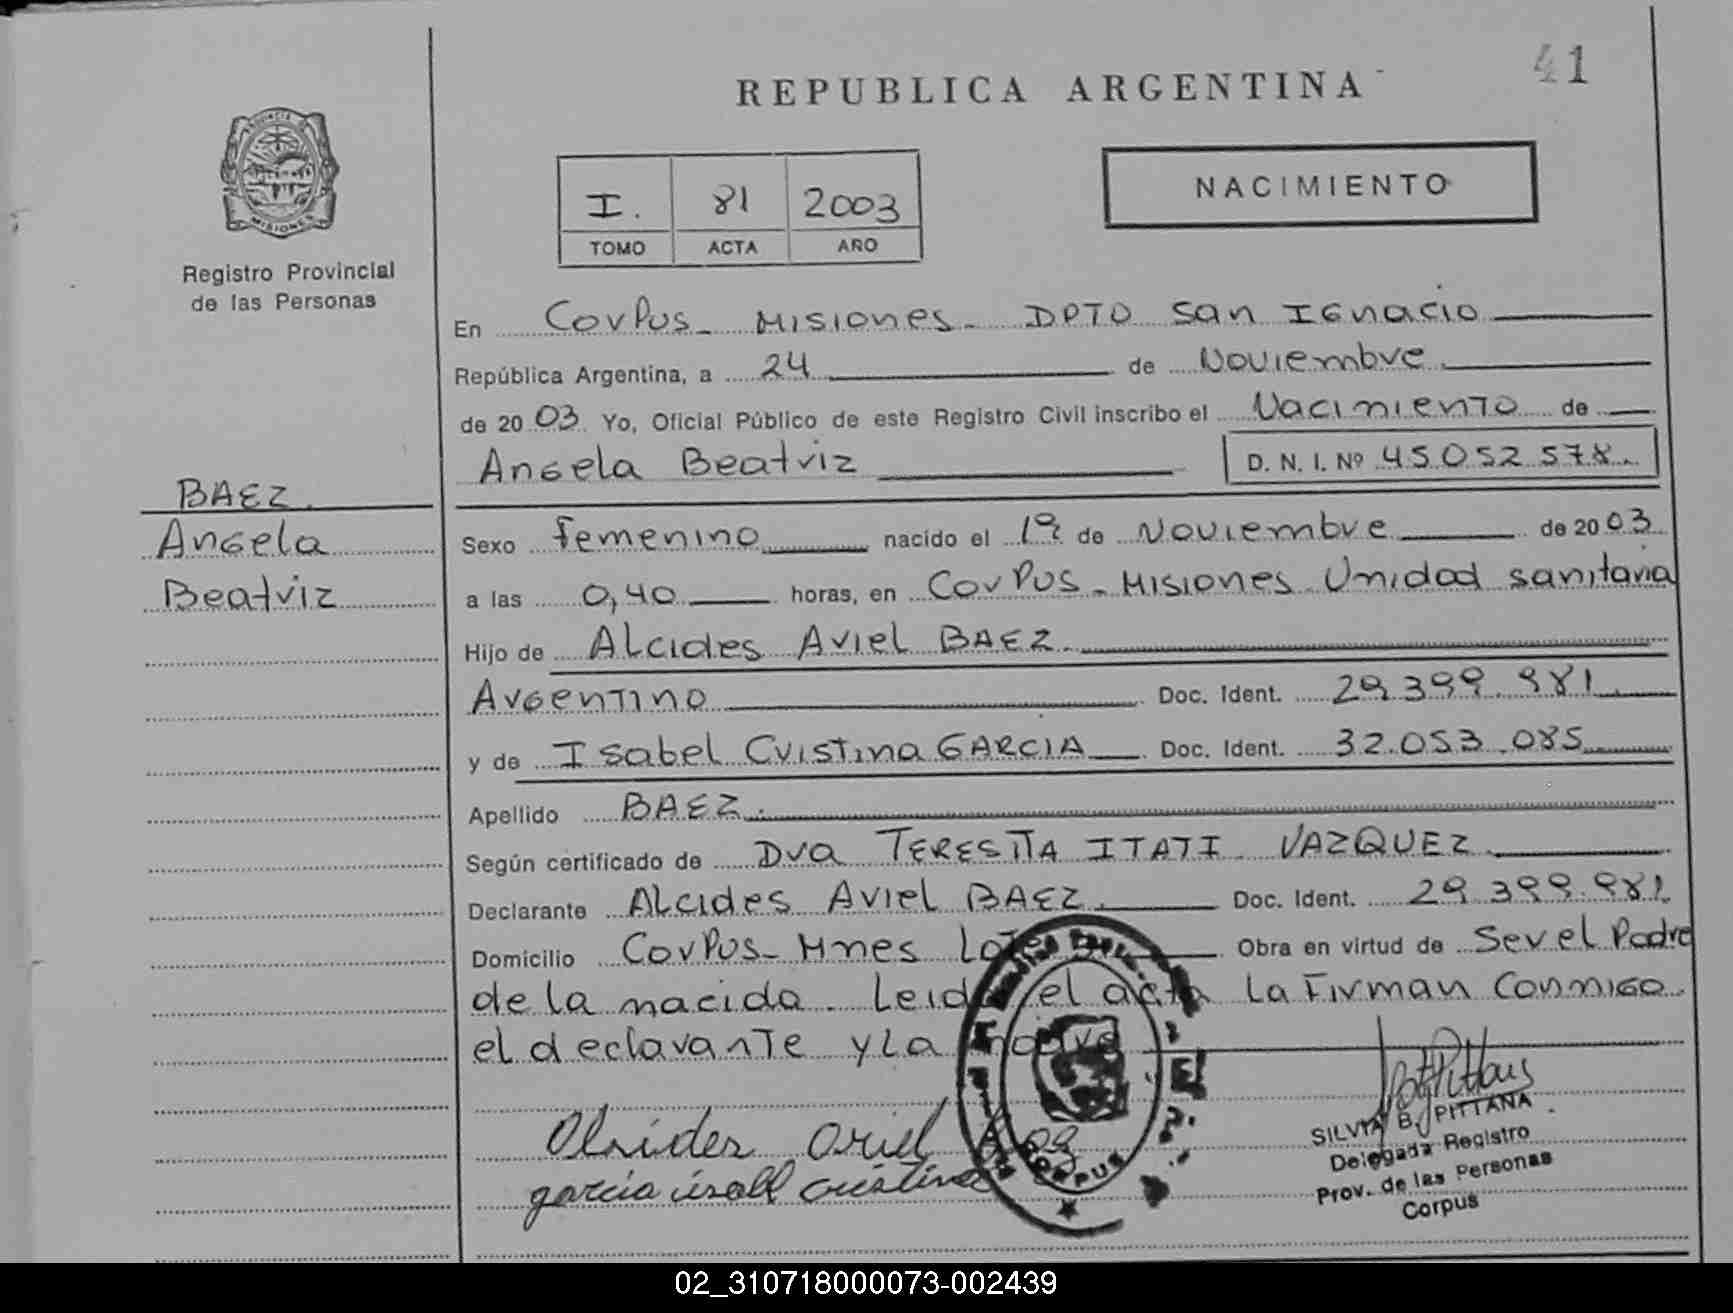 41
REPUBLICA ARGENTINA
PROVINCIA DE
MISIONES
Registro Provincial
de las Personas
I. 81 2003
TOMO ACTA AÑO
NACIMIENTO
En Corpus - Misiones - DPTO San Ignacio
República Argentina, a 24 de Noviembre
de 2003 Yo, Oficial Público de este Registro Civil inscribo el Nacimiento de
Angela Beatriz D. N. I. Nº 45.052.578.
BAEZ.
Angela
Beatriz
Sexo femenino nacido el 1º de Noviembre de 2003
a las 0,40 horas, en Corpus - Misiones Unidad sanitaria
Hijo de Alcides Ariel BAEZ.
Argentino Doc. Ident. 29.399.981
y de Isabel Cristina GARCIA Doc. Ident. 32.053.085
Apellido BAEZ.
Según certificado de Dra TERESITA ITATI VAZQUEZ
Declarante Alcides Ariel BAEZ. Doc. Ident. 29.399.981
Domicilio Corpus - Mnes Obra en virtud de Ser el Padre
de la nacida. Leida el acta La Firman conmigo
el declarante y La madre
Alcides Ariel
garcia isabel cristina
CORPUS
SILVIA B. PITTANA
Delegada Registro
Prov. de las Personas
Corpus
02_310718000073-002439